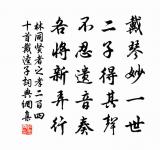 戴琴妙一世
二子得其聲
不忍遺音奏
各將新弄行
林同賢者之孝二百四
十首戴逵子詞典網集